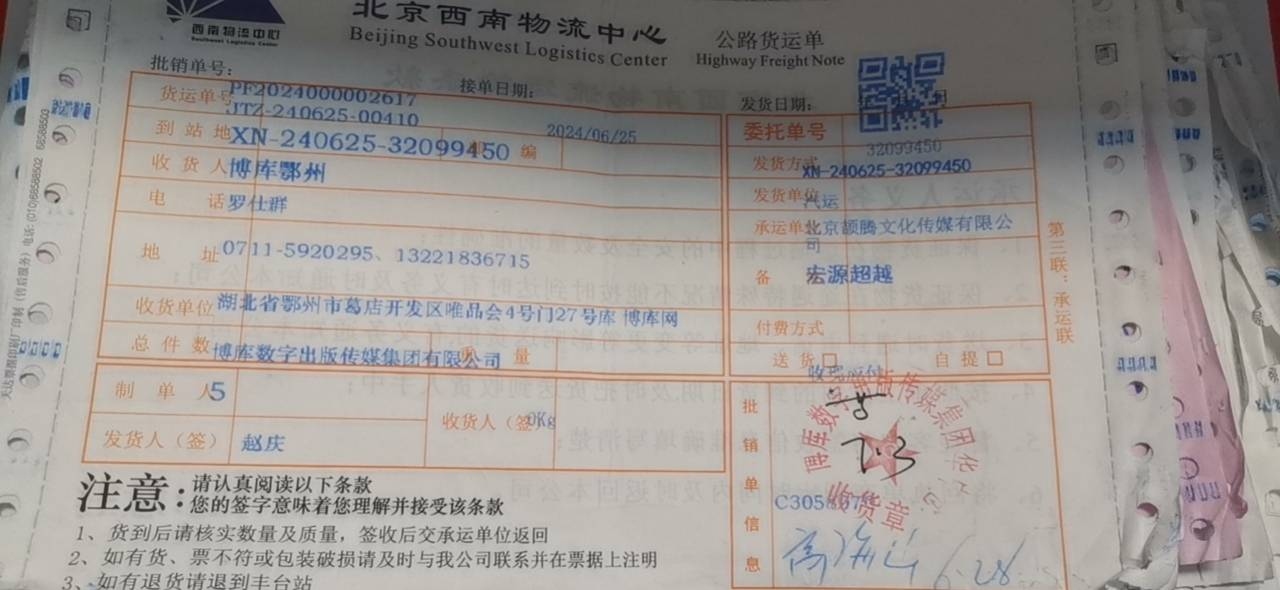 西南物流中心
Southwest Logistics Center
北京西南物流中心
Beijing Southwest Logistics Center
公路货运单
Highway Freight Note
批销单号:
接单日期:
发货日期:
货运单号 PF2024000002617
JTZ-240625-00410
2024/06/25
委托单号
32099450
到站地 XN-240625-32099450 编
发货方式 XN-240625-32099450
收货人 博库鄂州
发货单位 汽运
电话 罗仕群
承运单 北京颉腾文化传媒有限公
司
地址 0711-5920295、13221836715
备 宏源超越
收货单位 湖北省鄂州市葛店开发区唯品会4号门27号库 博库网
付费方式
总件数 博库数字出版传媒集团有限公司 量
送货 自提
制单人 5
收货人(签) 0Kg
发货人(签) 赵庆
批销单信息
7.3
收货章
6.28
第三联:承运联
注意:
请认真阅读以下条款
您的签字意味着您理解并接受该条款
1、货到后请核实数量及质量,签收后交承运单位返回
2、如有货、票不符或包装破损请及时与我公司联系并在票据上注明
3、如有退货请退到丰台站